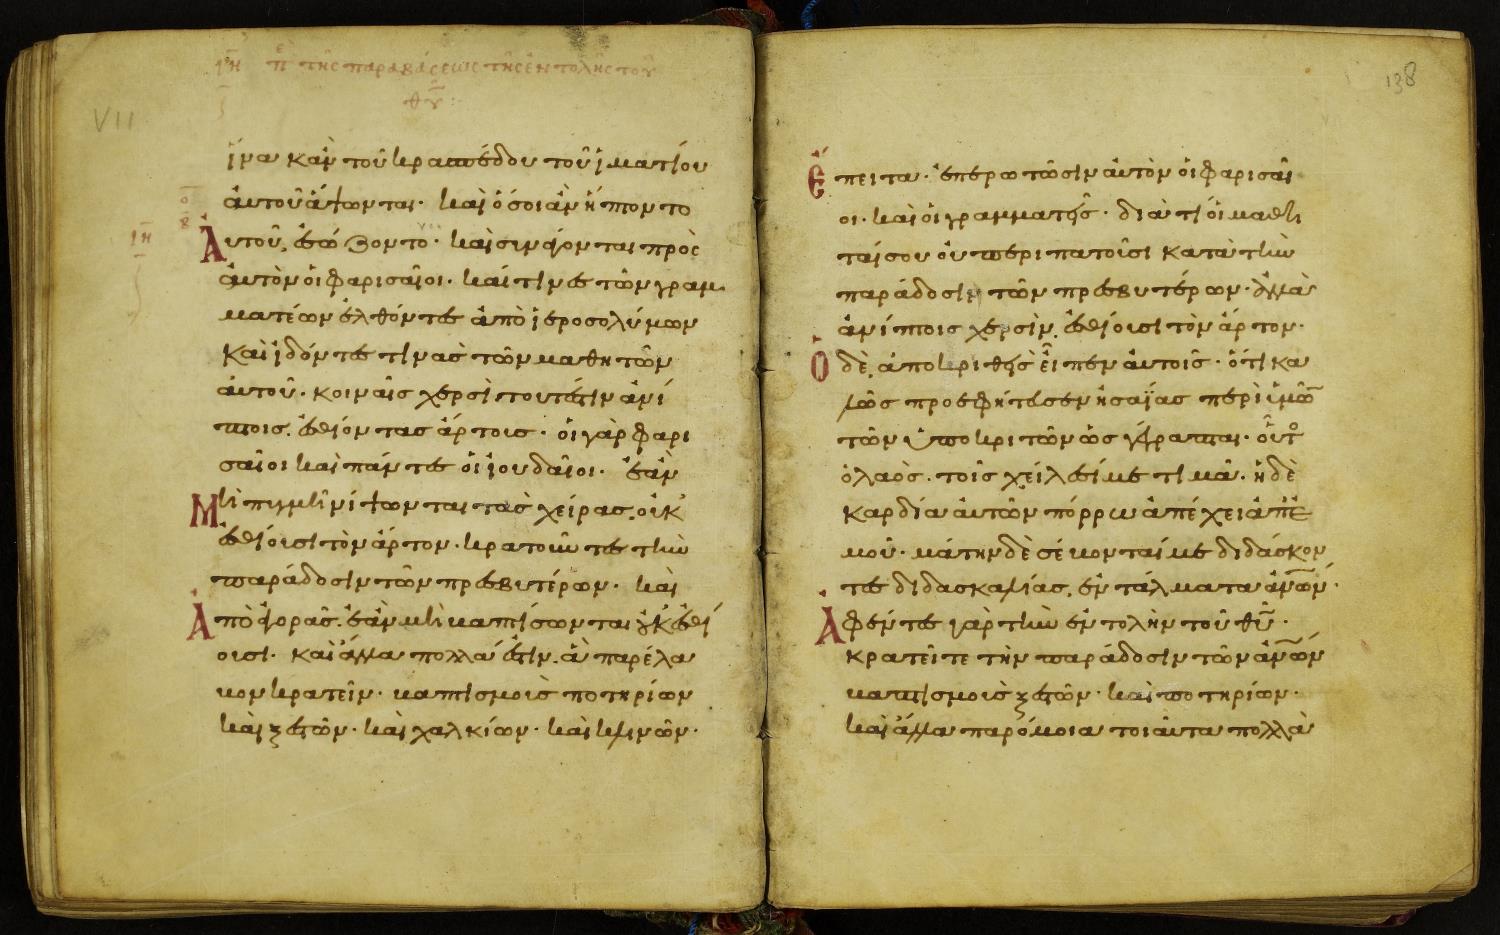 ιη π̅ε̅ τῆς παραβάσεως τῆς ἐντολῆς τοῦ
θ̅υ̅:
VII
ἵνα κἂν τοῦ κρασπέδου τοῦ ἱματίου
ἀυτοῦ ἅψωνται· καὶ ὅσοι ἂν ἥπτοντο
Ἀυτοῦ, ἐσώζοντο· καὶ συνάγονται πρὸς
ἀυτὸν οἱ φαρισαῖοι· καί τινες τῶν γραμ
ματέων ἐλθόντες ἀπὸ ἱεροσολύμων
Καὶ ἰδόντες τινὰς τῶν μαθητῶν
ἀυτοῦ· κοιναῖς χερσὶ τουτέστιν ἀνί
πτοις. ἐσθίοντας ἄρτοις· οἱ γὰρ φαρι
σαῖοι καὶ πάντες οἱ ἰουδαῖοι· ἐὰν
Μὴ πυγμῇ νίψωνται τὰς χεῖρας, οὐκ
ἐσθίουσι τὸν ἄρτον· κρατοῦντες τὴν
παράδοσιν τῶν πρεσβυτέρων· καὶ
Ἀπὸ ἀγορᾶς. ἐὰν μὴ βαπτίσωνται οὐκ ἐσθί
ουσι· καὶ ἄλλα πολλά ἐστιν. ἃ παρέλα
βον κρατεῖν· βαπτισμοὺς ποτηρίων
καὶ ξεστῶν· καὶ χαλκίων· καὶ κλινῶν·
138
Ἔπειτα· ἐπερωτῶσιν ἀυτὸν οἱ φαρισαῖ
οι· καὶ οἱ γραμματεῖς· διὰ τί οἱ μαθη
ταί σου οὐ περιπατοῦσι κατὰ τὴν
παράδοσιν τῶν πρεσβυτέρων· ἀλλὰ
ἀνίπτοις χερσὶν. ἐσθίουσι τὸν ἄρτον·
Ὁ δὲ, ἀποκριθεὶς εἶπεν ἀυτοῖς· ὅτι κα
λῶς προεφήτευσεν ἡσαΐας περὶ ὑμῶν
τῶν ὑποκριτῶν ὡς γέγραπται· οὗτος
ὁ λαὸς. τοῖς χείλεσί με τιμᾶ· ἡ δὲ
καρδία ἀυτῶν πόρρω ἀπέχει ἀπ'ἐ
μοῦ· μάτην δὲ σέβονταί με διδάσκον
τες διδασκαλίας, ἐντάλματα ἀν̅ω̅ν·
Ἀφέντες γὰρ τὴν ἐντολὴν τοῦ θ̅υ̅·
κρατεῖτε τὴν παράδοσιν τῶν ἀν̅ω̅ν
βαπτισμοὺς ξεστῶν· καὶ ποτηρίων·
καὶ ἄλλα παρόμοια τοιαῦτα πολλὰ